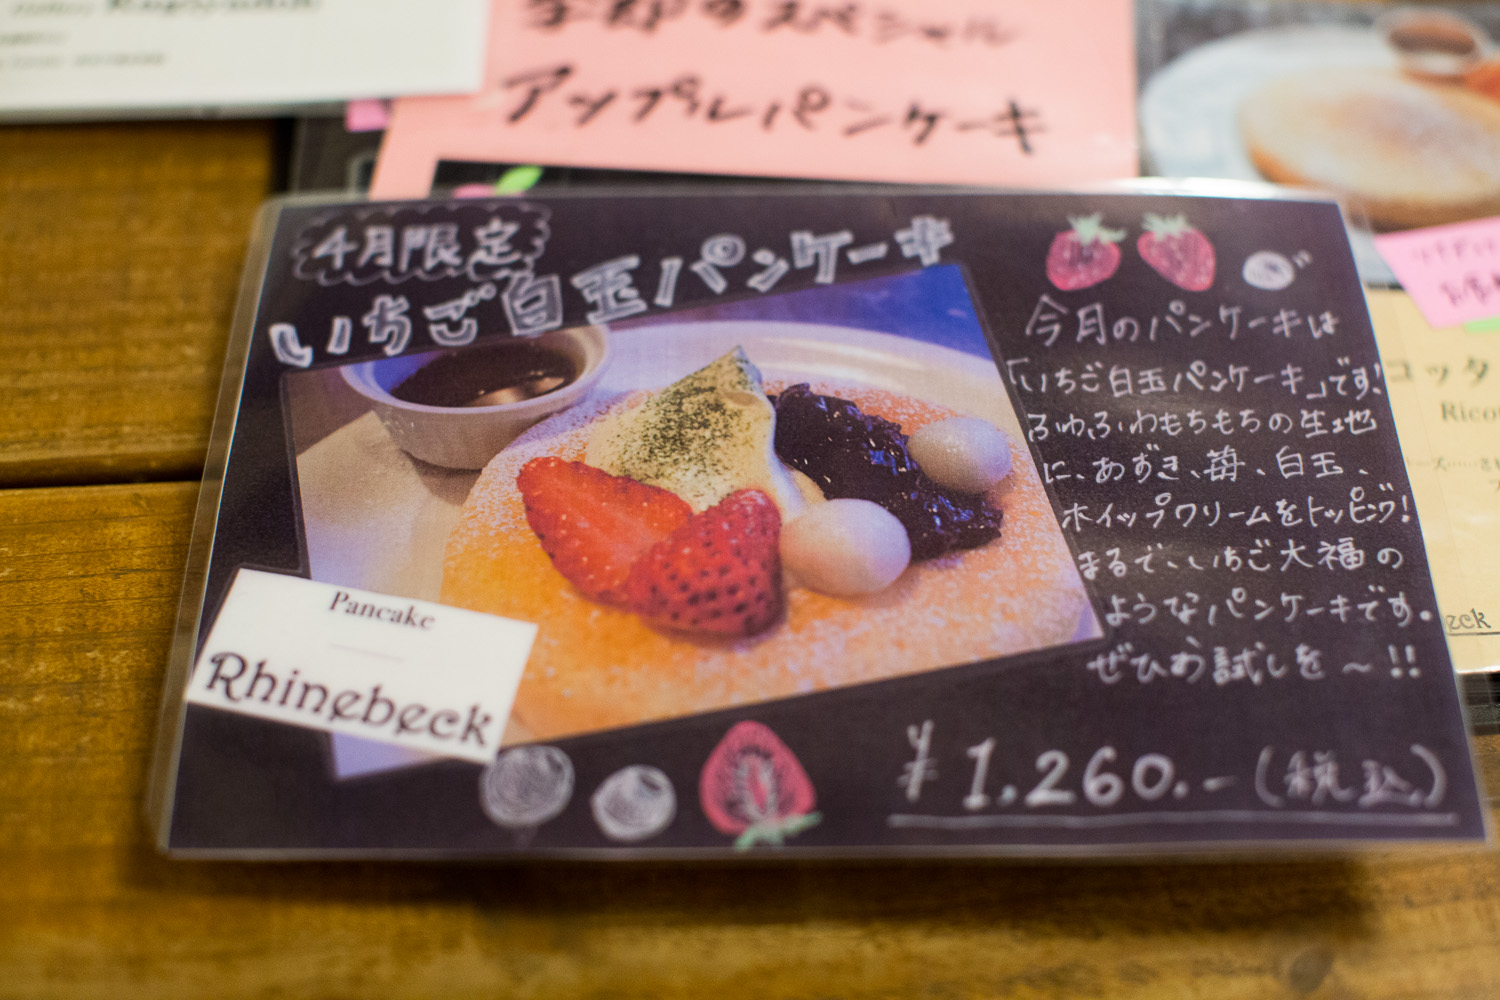 季節のスペシャル
アップルパンケーキ
4月限定
いちご白玉パンケーキ
今月のパンケーキは
「いちご白玉パンケーキ」です!
ふわふわもちもちの生地
に、あずき、苺、白玉、
ホイップクリームをトッピング!
まるで、いちご大福の
ようなパンケーキです。
ぜひお試しを〜!!
¥1.260.-(税込)
Pancake
Rhinebeck
コッタ
Rico